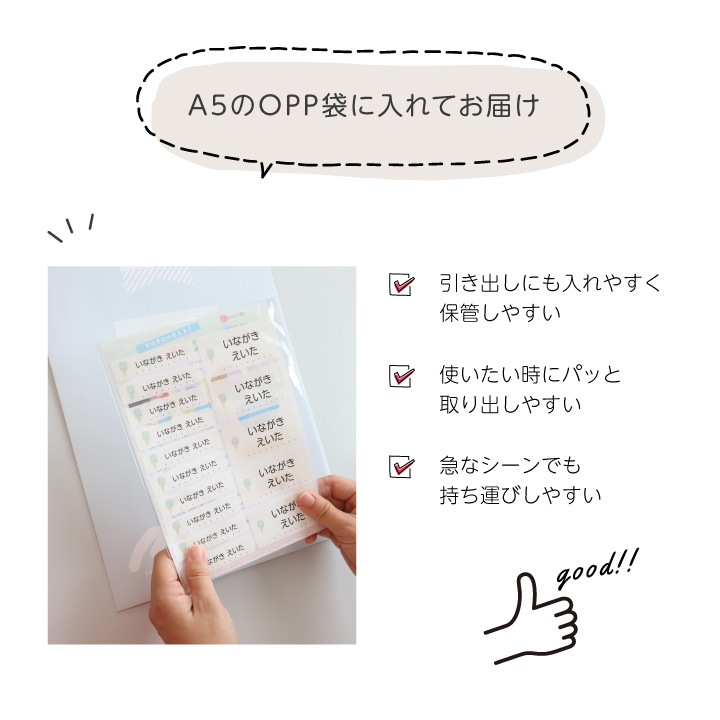 A5のOPP袋に入れてお届け
引き出しにも入れやすく
保管しやすい
使いたい時にパッと
取り出しやすい
急なシーンでも
持ち運びしやすい
good!!
いながき えいた
いながき えいた
いながき えいた
いながき えいた
いながき えいた
いながき えいた
いながき えいた
いながき えいた
いながき えいた
ながき えいた
いながき
えいた
いながき
えいた
いながき
えいた
いながき
えいた
いながき
えいた